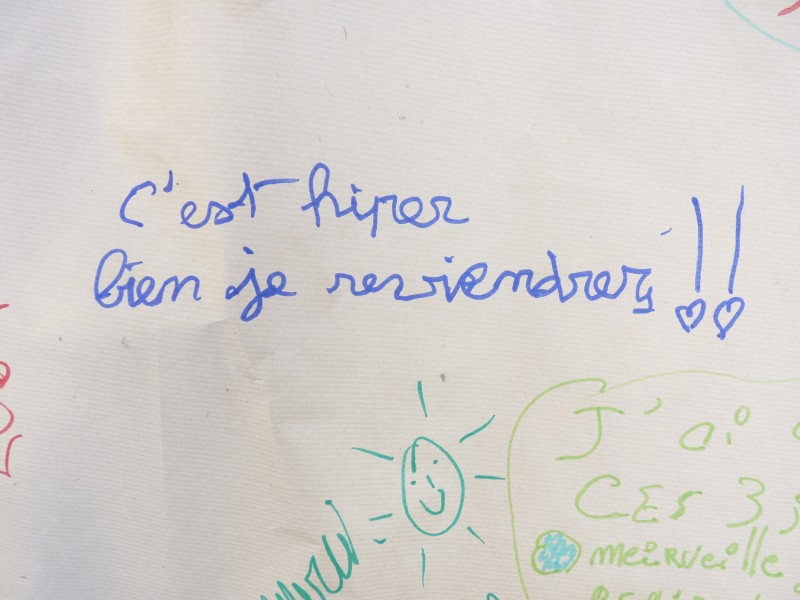 C'est hiper
bien je reviendrez !!
J'ai
CES 3
meirveille